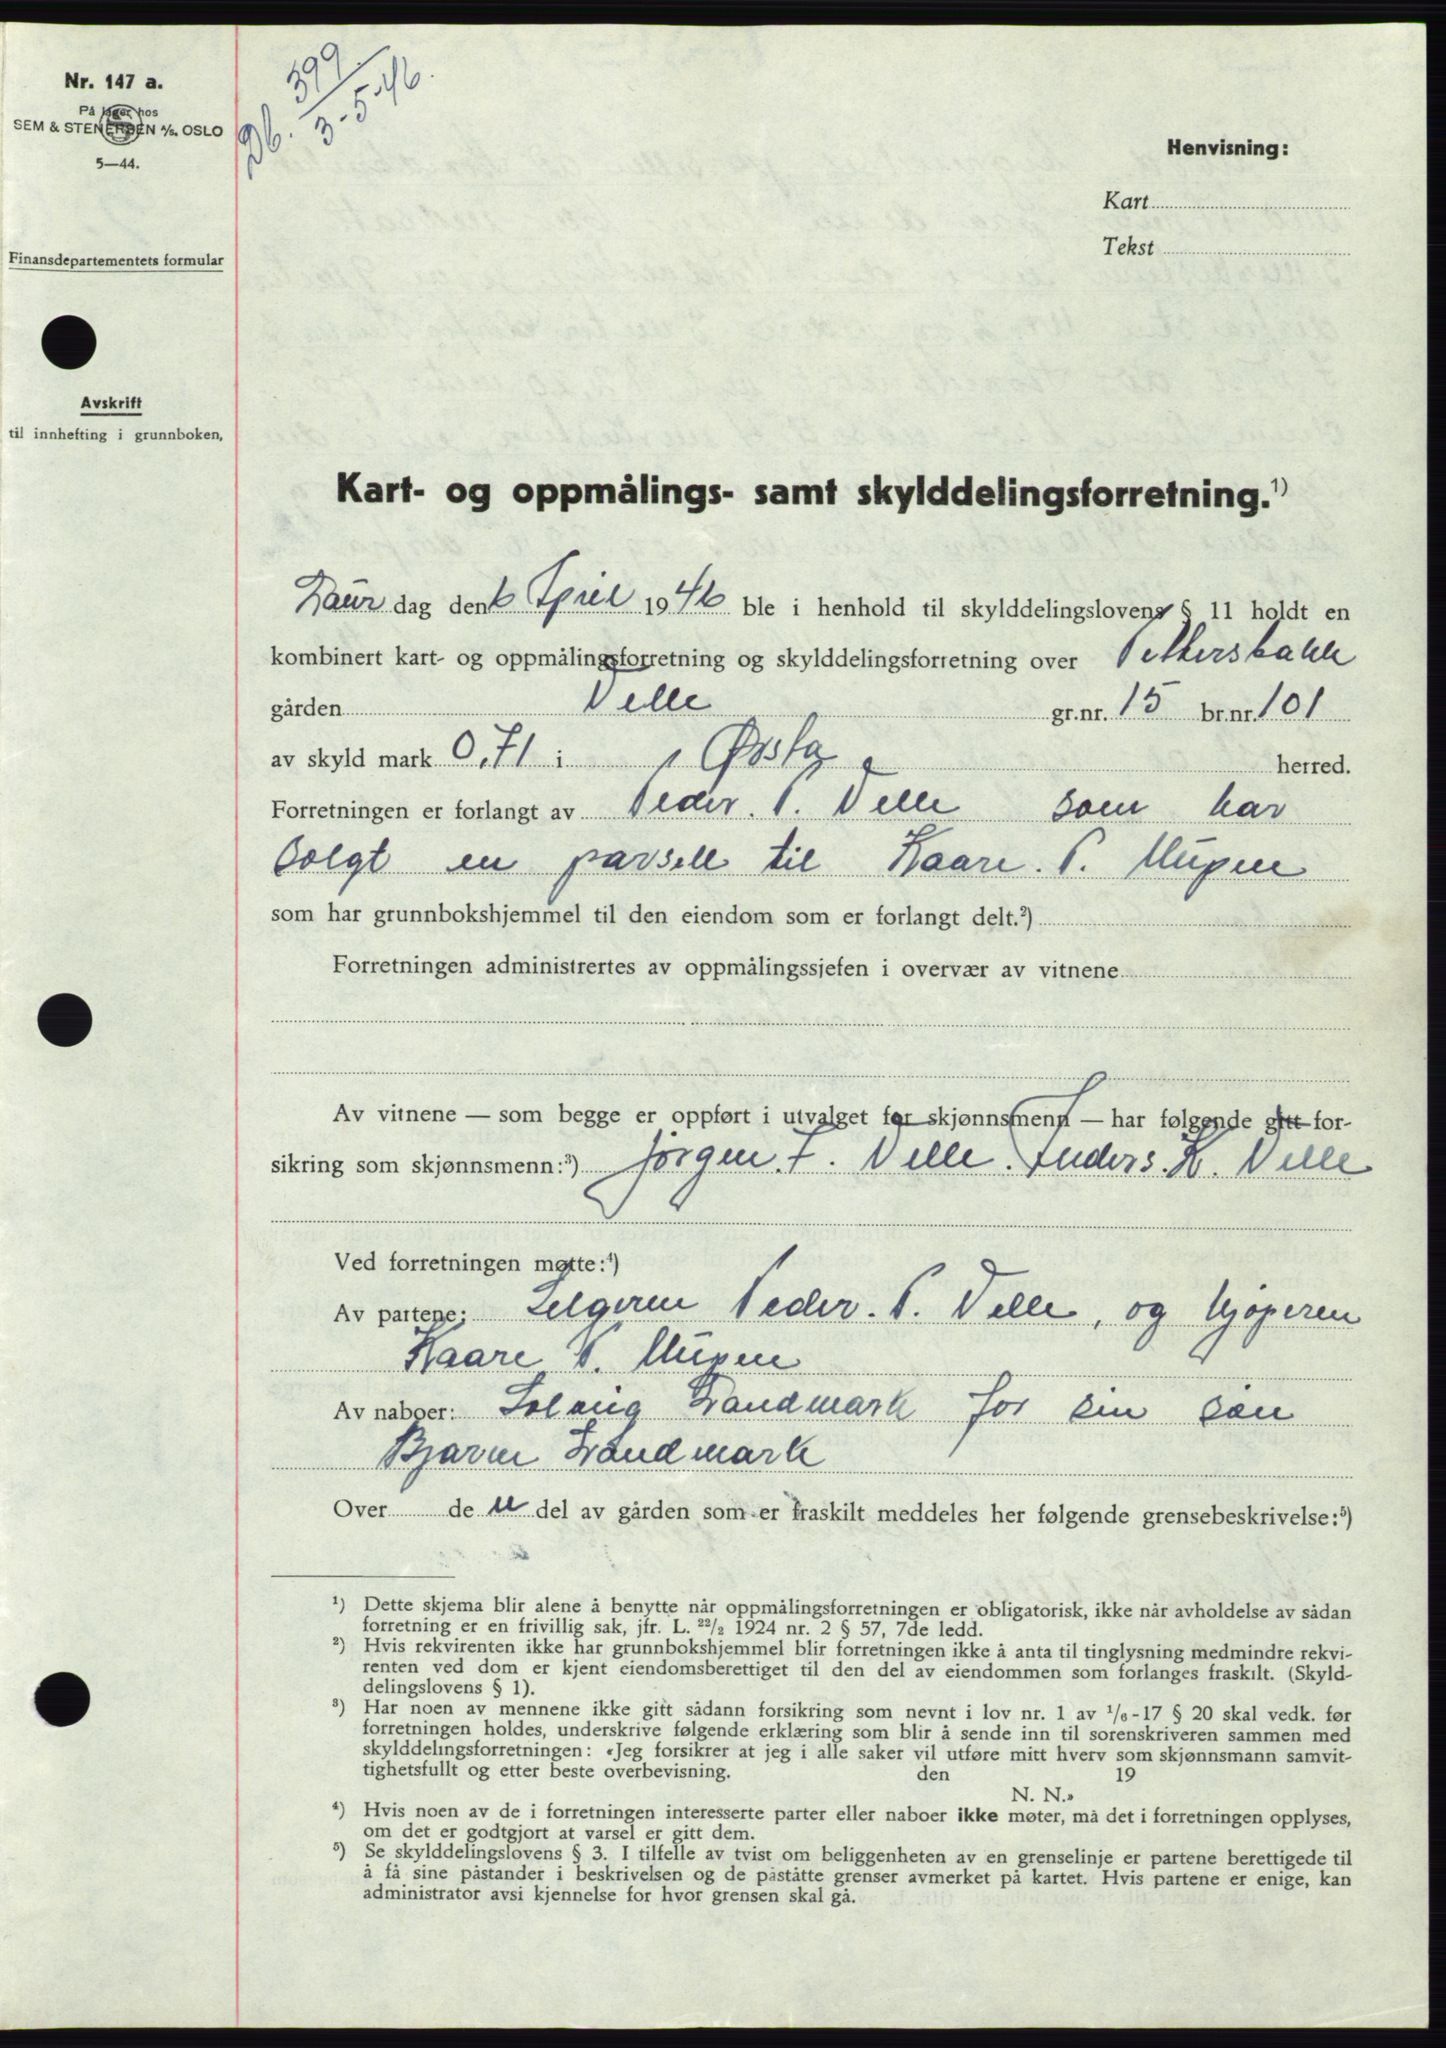 Nr. 147 a.
På lager hos
SEM & STENERSEN A/S. OSLO
5—44.
Finansdepartementets formular
Avskrift
til innhefting i grunnboken,
Db. 399
3-5-46.
Henvisning:
Kart
Tekst
Kart- og oppmålings- samt skylddelingsforretning.¹)
Laur dag den 6 April 1946 ble i henhold til skylddelingslovens § 11 holdt en
kombinert kart- og oppmålingsforretning og skylddelingsforretning over Pettersbakk
gården Velle gr.nr. 15 br.nr. 101
av skyld mark 0,71 i Ørsta herred.
Forretningen er forlangt av Peder. P. Velle som har
solgt en parsell til Kaare. P. Mupen
som har grunnbokshjemmel til den eiendom som er forlangt delt.²)
Forretningen administrertes av oppmålingssjefen i overvær av vitnene
Av vitnene — som begge er oppført i utvalget for skjønnsmenn — har følgende gitt for-
sikring som skjønnsmenn:³) Jørgen. F. Velle. Anders. K. Velle
Ved forretningen møtte:⁴)
Av partene: Selgeren Peder. P. Velle, og kjøperen
Kaare P. Mupen
Av naboer: Solveig Landmark for sin søn
Bjarne Landmark
Over de n del av gården som er fraskilt meddeles her følgende grensebeskrivelse:⁵)
¹) Dette skjema blir alene å benytte når oppmålingsforretningen er obligatorisk, ikke når avholdelse av sådan
forretning er en frivillig sak, jfr. L. ²²/₂ 1924 nr. 2 § 57, 7de ledd.
²) Hvis rekvirenten ikke har grunnbokshjemmel blir forretningen ikke å anta til tinglysning medmindre rekvi-
renten ved dom er kjent eiendomsberettiget til den del av eiendommen som forlanges fraskilt. (Skyld-
delingslovens § 1).
³) Har noen av mennene ikke gitt sådann forsikring som nevnt i lov nr. 1 av ¹/₆-17 § 20 skal vedk. før
forretningen holdes, underskrive følgende erklæring som blir å sende inn til sorenskriveren sammen med
skylddelingsforretningen: «Jeg forsikrer at jeg i alle saker vil utføre mitt hverv som skjønnsmann samvit-
tighetsfullt og etter beste overbevisning. den 19
N. N.»
⁴) Hvis noen av de i forretningen interesserte parter eller naboer ikke møter, må det i forretningen opplyses,
om det er godtgjort at varsel er gitt dem.
⁵) Se skylddelingslovens § 3. I tilfelle av tvist om beliggenheten av en grenselinje er partene berettigede til
å få sine påstander i beskrivelsen og de påståtte grenser avmerket på kartet. Hvis partene er enige, kan
administrator avsi kjennelse for hvor grensen skal gå.